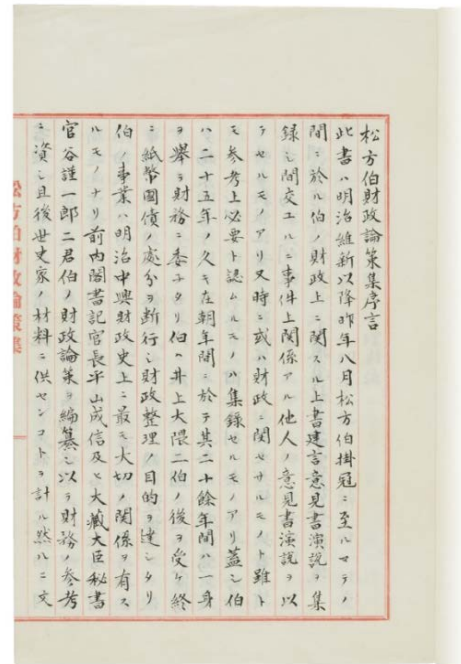 松方伯財政論策集序言
此書ハ明治維新以降昨年八月松方伯掛冠ニ至ルマテノ
間ニ於ル伯ノ財政上ニ関スル上書建言意見書演説ヲ集
録シ間交ユルニ事件上関係アル他人ノ意見書演説ヲ以
テセルモノアリ又時ニ或ハ財政ニ関セサルモノト雖ト
モ参考上必要ト認ムルモノハ集録セルモノアリ蓋シ伯
ハ二十五年ノ久キ在朝年間ニ於テ其二十餘年間ハ一身
ヲ挙ケ財務ニ委子タリ伯ハ井上大隈二伯ノ後ヲ受ケ終
ニ紙幣國債ノ處分ヲ断行シ財政整理ノ目的ヲ達シタリ
伯ノ事業ハ明治中興財政史上ニ最モ大切ノ関係ヲ有ス
ルモノナリ前内閣書記官長平山成信及ヒ大藏大臣秘書
官谷謹一郎二君伯ノ財政論策ヲ編纂シ以テ財務ノ参考
ニ資シ且後世史家ノ材料ニ供センコトヲ計ル然ルニ文
松方伯財政論策集